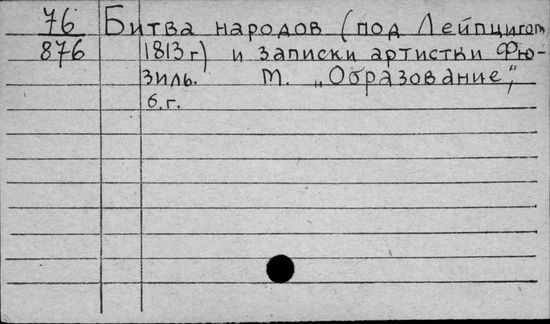 76 Битва народов (под Лейпцигом
876 1813 г) и записки артистки Фю-
зиль. М. „Образование",
б.г.